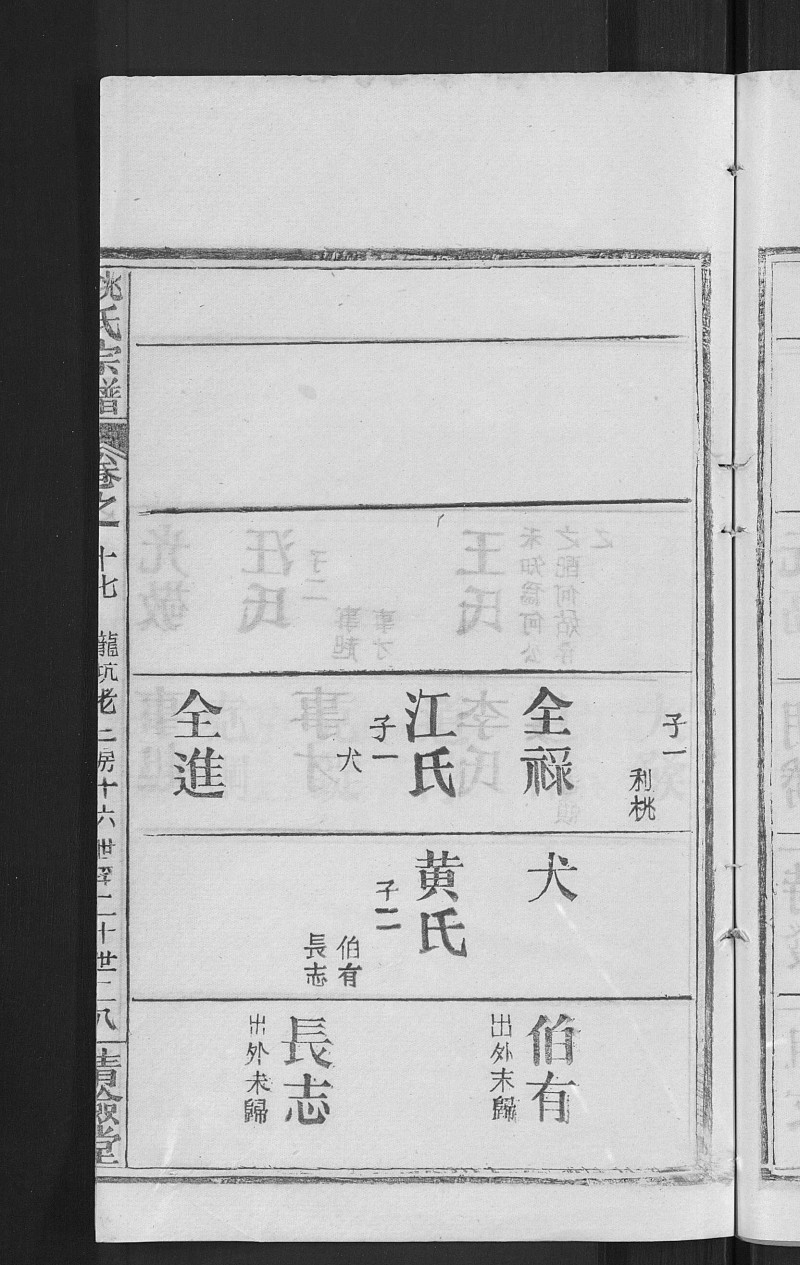 子一
利桃
全祿
江氏
子一
犬
全進
犬
黄氏
子二
伯有
長志
伯有
出外末歸
長志
出外未歸
姚氏宗譜
卷之
十七
龍坑老二房十六世至二十世二八
清儉堂